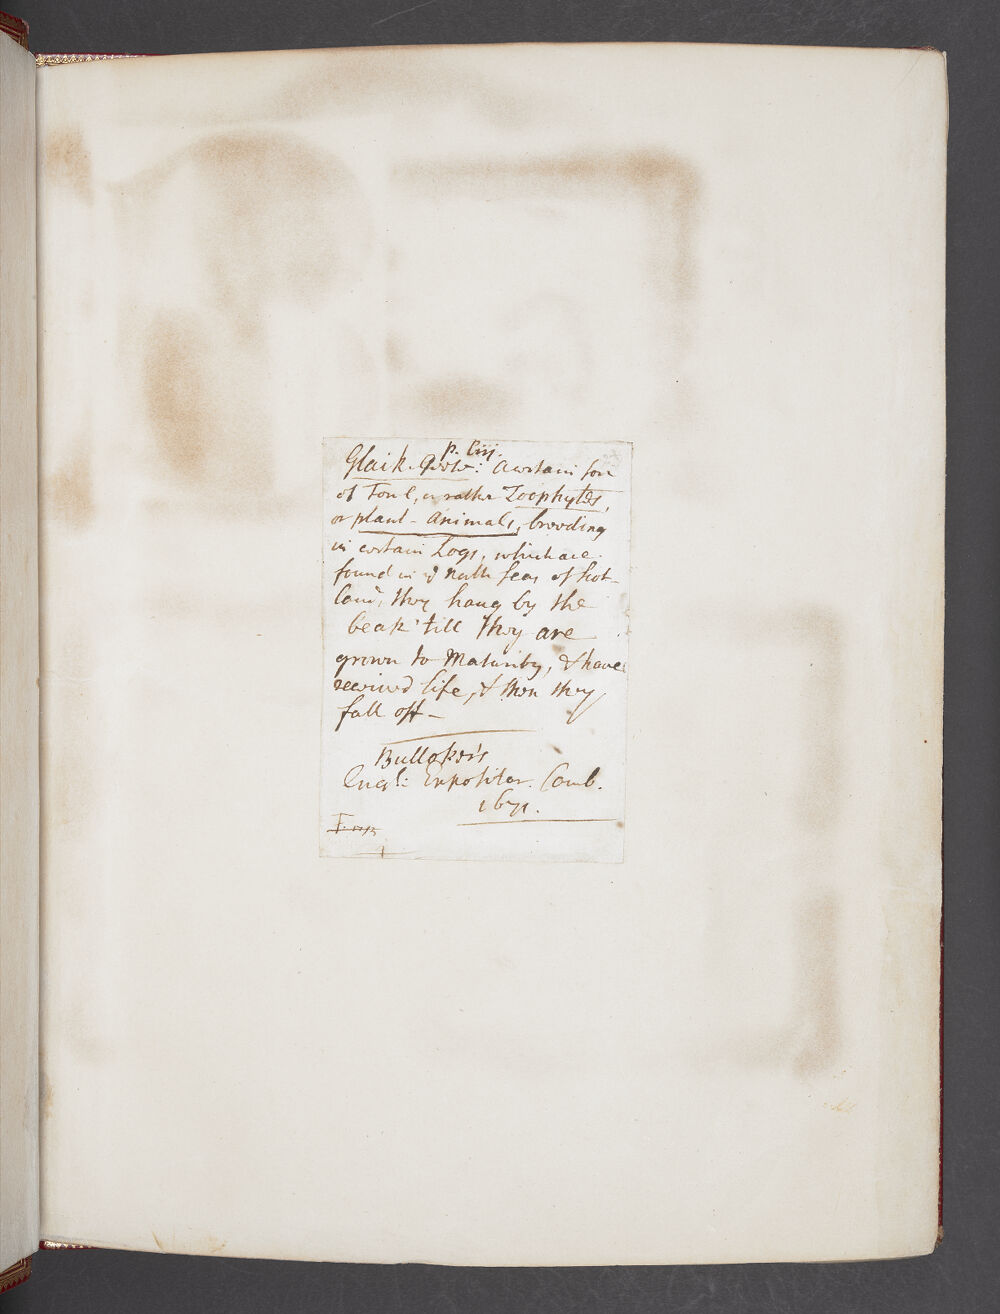 p. Ciij.
Glaik-Goose: A certain sort
of Fowl, or rather Zoophytes,
or plant-animals, breeding
in certain Logs, which are
found in ye North Seas of Scot-
land, they hang by the
beak till they are
grown to Maturity, & have
received life, & then they
fall off –
Bullokar's
Engl: Expositor. Camb.
1671.